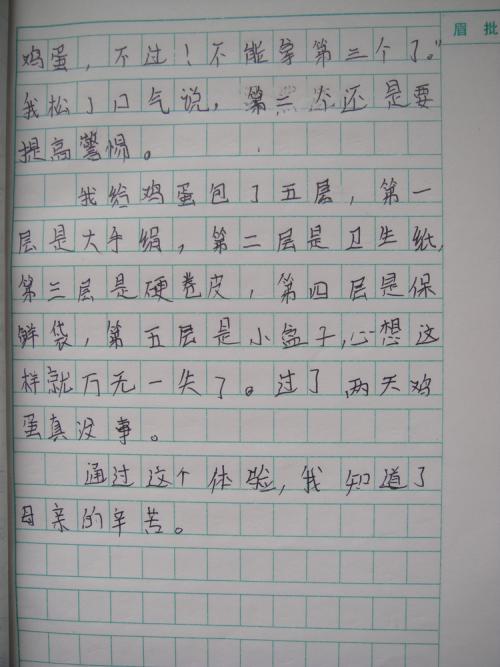 眉 批
鸡蛋，不过！不能拿第三个了。”
我松了口气说，第三次还是要
提高警惕。
我给鸡蛋包了五层，第一
层是大手绢，第二层是卫生纸，
第三层是硬卷皮，第四层是保
鲜袋，第五层是小盒子，心想这
样就万无一失了。过了两天鸡
蛋真没事。
通过这个体验，我知道了
母亲的辛苦。